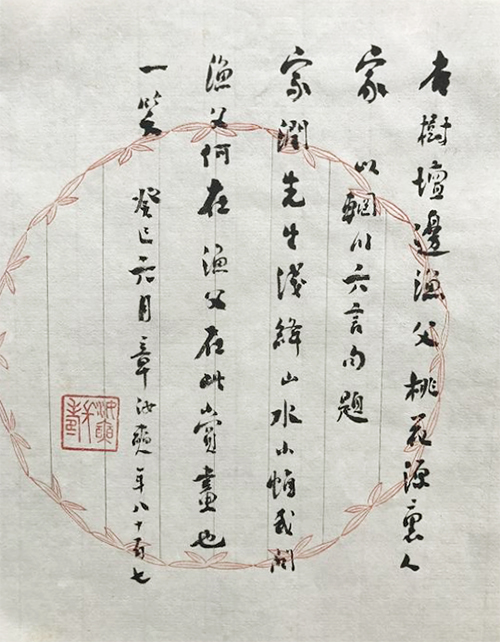 杏樹壇邊漁父桃花源裏人
家 以輞川六言句題
家潤先生淺絳山水小幀或問
漁父何在漁父在此賞畫也
一笑 癸巳六月章汝奭年八十有七